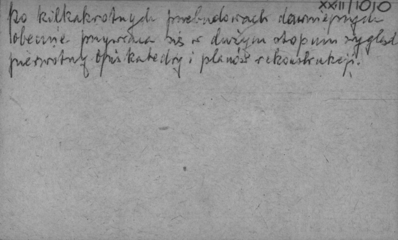 XXII/1010
po kilkakrotnych przebudowach dawniejszych
obecnie przywraca się w dużym stopniu wygląd
pierwotny katedry i planów rekonstrukcji.